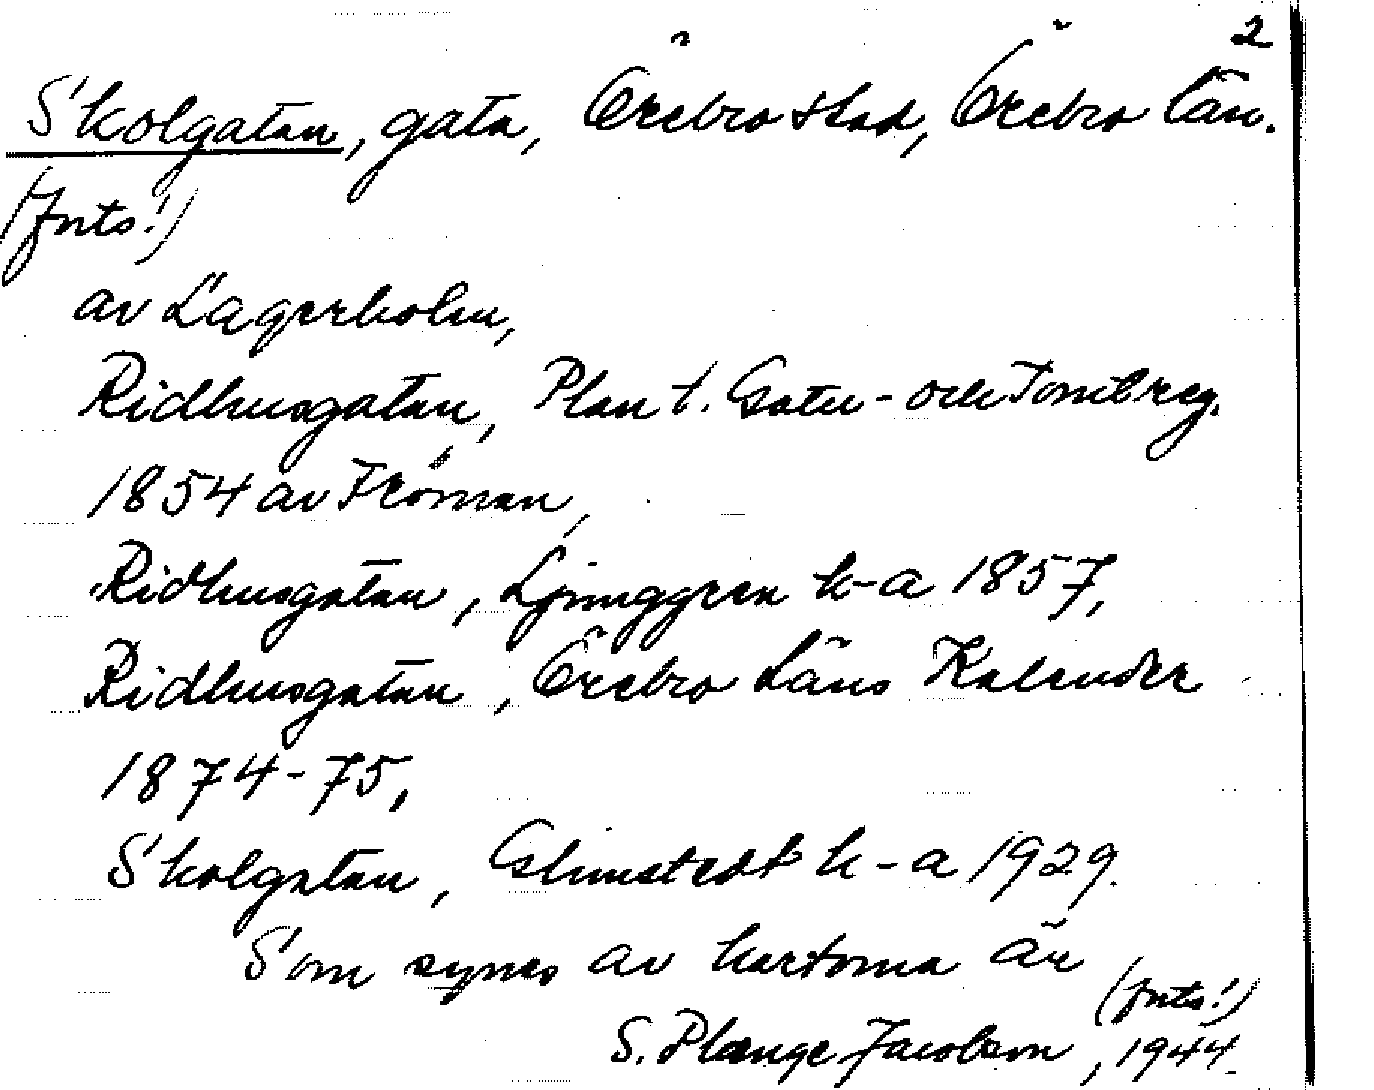 2
Skolgatan, gata, Örebro stad, Örebro län.
(forts!)
av Lagerholm,
Ridhusgatan, Plan t. Gatu- och Tomtreg.
1854 av Fröman,
Ridhusgatan, Ljunggren k-a 1857,
Ridhusgatan, Örebro Läns Kalender
1874-75,
Skolgatan, Glimstedt k-a 1929.
Som synes av kartorna är
(forts!)
S. Plænge Jacobson, 1944.